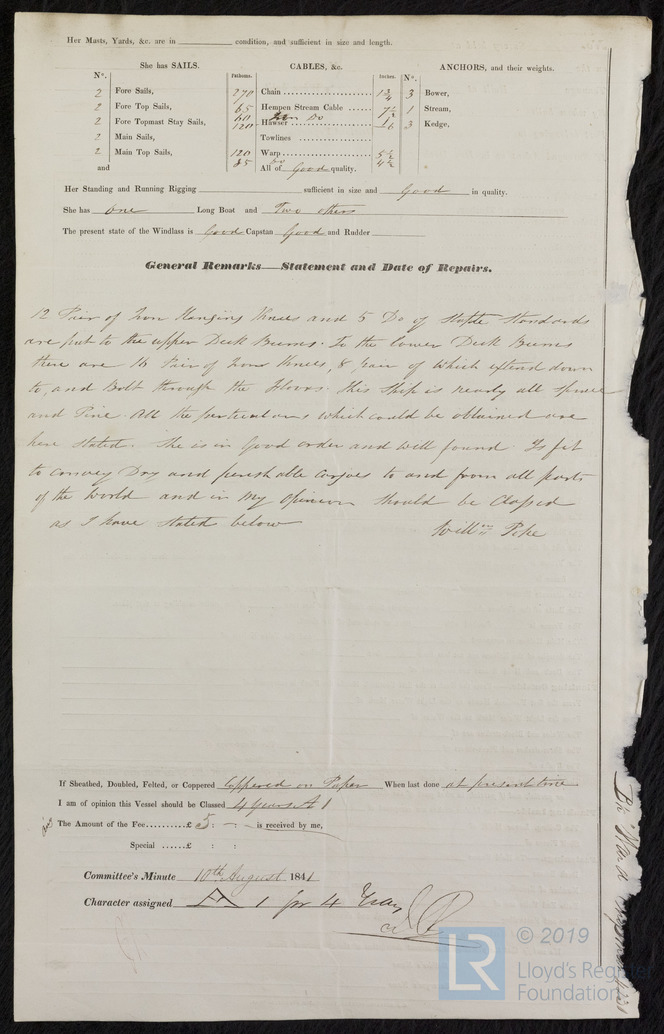 Her Masts, Yards, &c. are in condition, and sufficient in size and length.
She has SAILS. CABLES, &c. ANCHORS, and their weights.
N°. Fathoms. Inches. N°.
2 Fore Sails, 270 Chain 1 3/4 3 Bower,
2 Fore Top Sails, 65 Hempen Stream Cable 1 Stream,
2 Fore Topmast Stay Sails, 120 Hawser 3 Kedge,
2 Main Sails, Towlines
2 Main Top Sails, 120 Warp 5 1/2
and 85 All of Good quality. 4 1/2
Her Standing and Running Rigging sufficient in size and Good in quality.
She has One Long Boat and Two others
The present state of the Windlass is Good Capstan Good and Rudder
General Remarks—Statement and Date of Repairs.
12 Pair of Iron Hanging Knees and 5 Do of Staple Standards
are put to the upper Deck Beams. To the lower Deck Beams
there are 16 Pair of Iron Knees, 8 pair of which extend down
to, and Bolt through the Floors. This Ship is nearly all Spruce
and Pine. All the particulars which could be obtained are
here stated. She is in Good order and Well found. Is fit
to convey Dry and perishable cargoes to and from all parts
of the World and in my Opinion should be Classed
as I have stated below
Willm Pope
If Sheathed, Doubled, Felted, or Coppered Coppered on Paper When last done at present time
I am of opinion this Vessel should be Classed 4 Years A 1
The Amount of the Fee..........£ 5 : - : - is received by me,
Special ......£ : :
Committee's Minute 10th August 1841
Character assigned A 1 for 4 Years
© 2019
LR
Lloyd's Register
Foundation